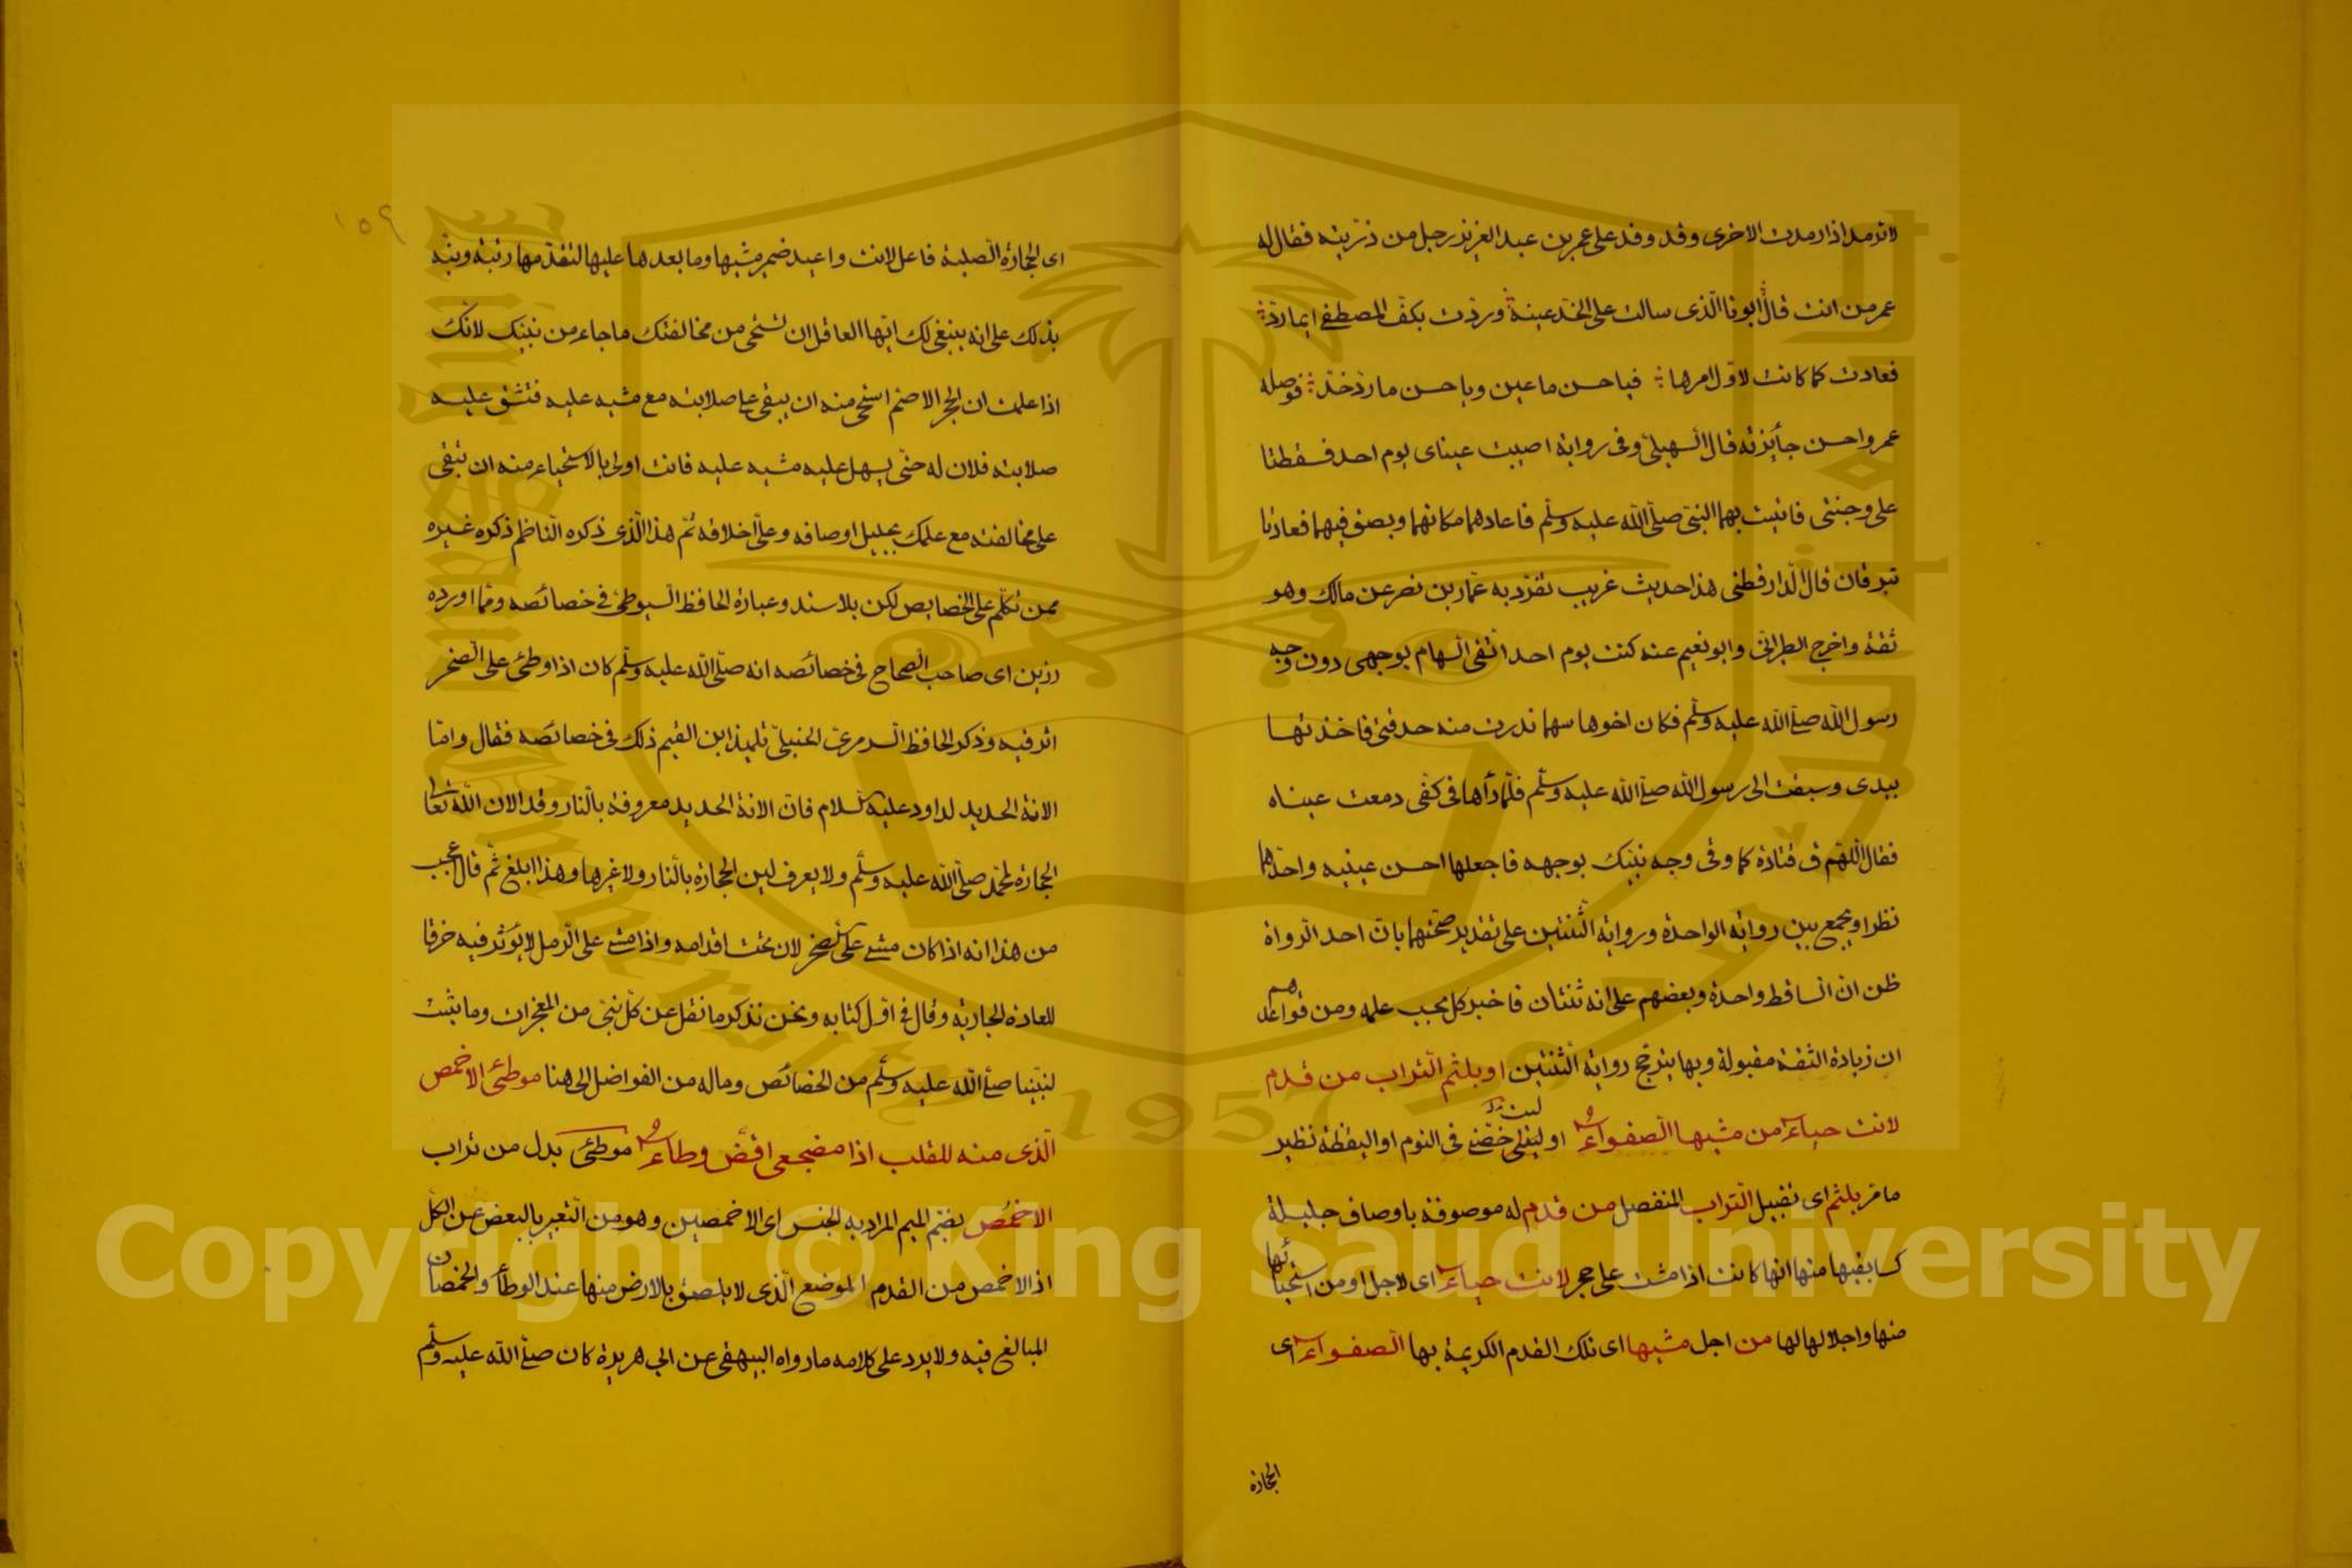 لا ترمد اذا رمدت الاخرى وقد وفد على عمر بن عبد العزيز رجل من ذريته فقال له
عمر من انت قال ابونا الذى سالت على الخد عينه وردت بكف المصطفى ايما رد
فعادت كما كانت لاول امرها فيا حسن ما عين ويا حسن ما رد خد فوصله
عمر واحسن جائزته قال السهيلى وفى رواية اصيبت عيناى يوم احد فسقطتا
على وجنتى فاتيت بهما النبى صلى الله عليه وسلم فاعادهما مكانهما وبصق فيهما فعادتا
تبرقان قال الدارقطنى هذا حديث غريب تفرد به عمار بن نصر عن مالك وهو
ثقة واخرج الطبرانى وابو نعيم عنه كنت يوم احد اتقى السهام بوجهى دون وجه
رسول الله صلى الله عليه وسلم فكان اخرها سهما ندرت منه حدقتى فاخذتها
بيدى وسعيت الى رسول الله صلى الله عليه وسلم فلما رأها فى كفى دمعت عيناه
فقال اللهم ق قتادة كما وقى وجه نبيك بوجهه فاجعلها احسن عينيه واحدهما
نظرا ويجمع بين رواية الواحدة ورواية الثنتين على تقدير صحتهما بان احد الرواة
ظن ان الساقط واحدة وبعضهم على انه ثنتان فاخبر كل بحسب علمه ومن قواعدهم
ان زيادة الثقة مقبولة وبها يترجح رواية الثنتين او بلثم التراب من قدم
لانت حياء من مشيها الصفواء او ليته خصنى فى النوم او اليقظة نظير
ما مر بلثم اى تقبيل التراب المنفصل من قدم له موصوفة باوصاف جليلة
كسابقيها منها انها كانت اذا مشت على حجر لانت حياء اى لاجل او من استحيائها
منها واجلالها لها من اجل مشيها اى تلك القدم الكريمة بها الصفواء اى
الحجارة
١٥٩
اى الحجارة الصلبة فاعل لانت واعيد ضمير مشيها وما بعدها عليها لتقدمها رتبة ونبه
بذلك على انه ينبغى لك ايها العاقل ان تستحى من مخالفتك ما جاء من نبيك لانك
اذا علمت ان الحجر الاصم استحى منه ان يبقى على صلابته مع مشيه عليه فتشق عليه
صلابته فلان له حتى يسهل عليه مشيه عليه فانت اولى بالاستحياء منه ان تبقى
على مخالفته مع علمك بجليل اوصافه وعلى اخلاقه ثم هذا الذى ذكره الناظم ذكره غيره
ممن تكلم على الخصايص لكن بلا سند وعبارة الحافظ السيوطى فى خصائصه ومما اورده
رزين اى صاحب الصحاح فى خصائصه انه صلى الله عليه وسلم كان اذا وطئ على الصخر
اثر فيه وذكر الحافظ السرمرى الحنبلى تلميذ ابن القيم ذلك فى خصائصه فقال واما
الانة الحديد لداود عليه السلام فان الانة الحديد معروفة بالنار وقد الان الله تعالى
الحجارة لمحمد صلى الله عليه وسلم ولا يعرف لين الحجارة بالنار ولا غيرها وهذا ابلغ ثم قال واعجب
من هذا انه اذا كان مشى على الصخر لان تحت اقدامه واذا مشى على الرمل لا يؤثر فيه خرقا
للعادة الجارية وقال فى اول كتابه ونحن نذكر ما نقل عن كل نبى من المعجزات وما ثبت
لنبينا صلى الله عليه وسلم من الخصائص وماله من الفواضل الى هنا موطئ الاخمص
الذى منه للقلب اذا مضجعى اقض وطاء موطئ بدل من تراب
الاخمص بضم الميم المراد به الجنس اى الاخمصين وهو من التعبير بالبعض عن الكل
اذ الاخمص من القدم الموضع الذى لا يلصق بالارض منها عند الوطأ والخمصان
المبالغ فيه ولا يرد على كلامه ما رواه البيهقى عن ابى هريرة كان صلى الله عليه وسلم
Copyright © King Saud University
King Saud University
1957